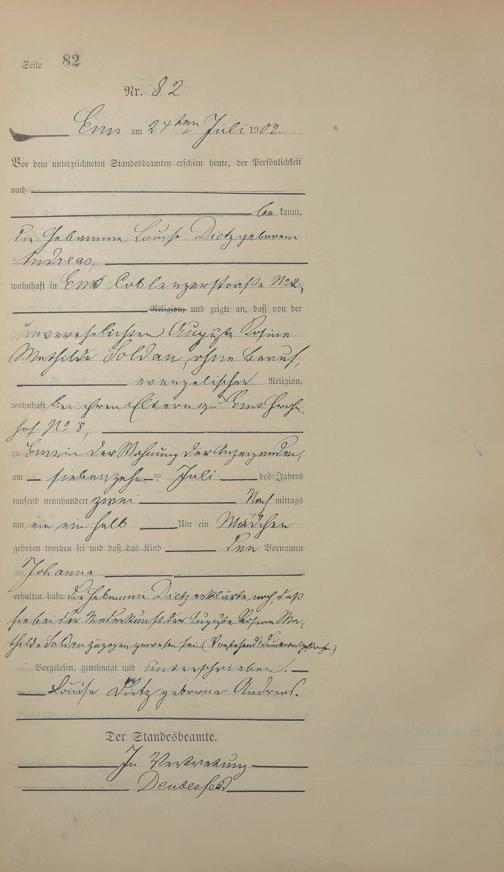 Seite 82
Nr. 82
Ems am 24ten Juli 1902
Vor dem unterzeichneten Standesbeamten erschien heute, der Persönlichkeit
nach
be kannt,
die Hebamme Louise Dietz geborene
Andreas,
wohnhaft in Ems Coblenzerstraße No 2,
Religion, und zeigte an, daß von der
unverehelichten Auguste Rosine
Mathilde Soldan, ohne Beruf,
evangelischer Religion,
wohnhaft bei ihren Eltern zu Ems
hof No 8,
zu Ems in der Wohnung der Anzeigenden
am siebenzehn ten Juli des Jahres
tausend neunhundert zwei Nach mittags
um ein ein halb Uhr ein Mädchen
geboren worden sei und daß das Kind den Vornamen
Johanna
erhalten habe. Die Hebamme Dietz erklärte noch, daß
sie bei der Niederkunft der Auguste Rosine Ma-
thilde Soldan zugegen gewesen sei (Vorstehend Druckwort gestrichen)
Vorgelesen, genehmigt und unterschrieben.
Louise Dietz geborene Andreas.
Der Standesbeamte.
In Vertretung